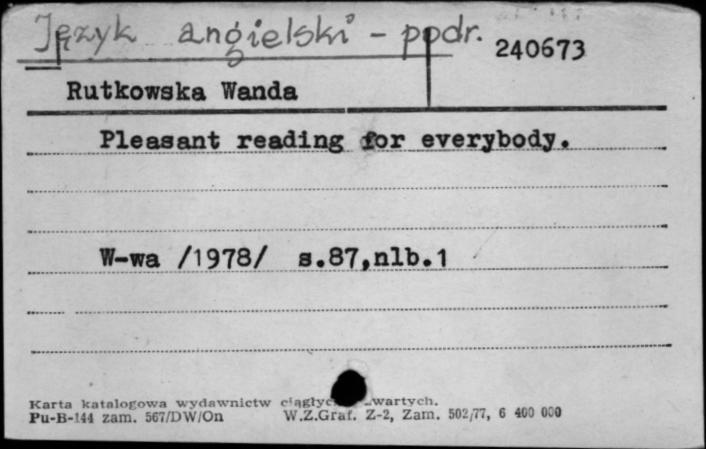 Język angielski - podr.
240673
Rutkowska Wanda
Pleasant reading for everybody.
W-wa /1978/ s.87,nlb.1
Karta katalogowa wydawnictw wartych.
Pu-B-144 zam. 567/DW/On W.Z.Graf. Z-2, Zam. 502/77, 6 400 000